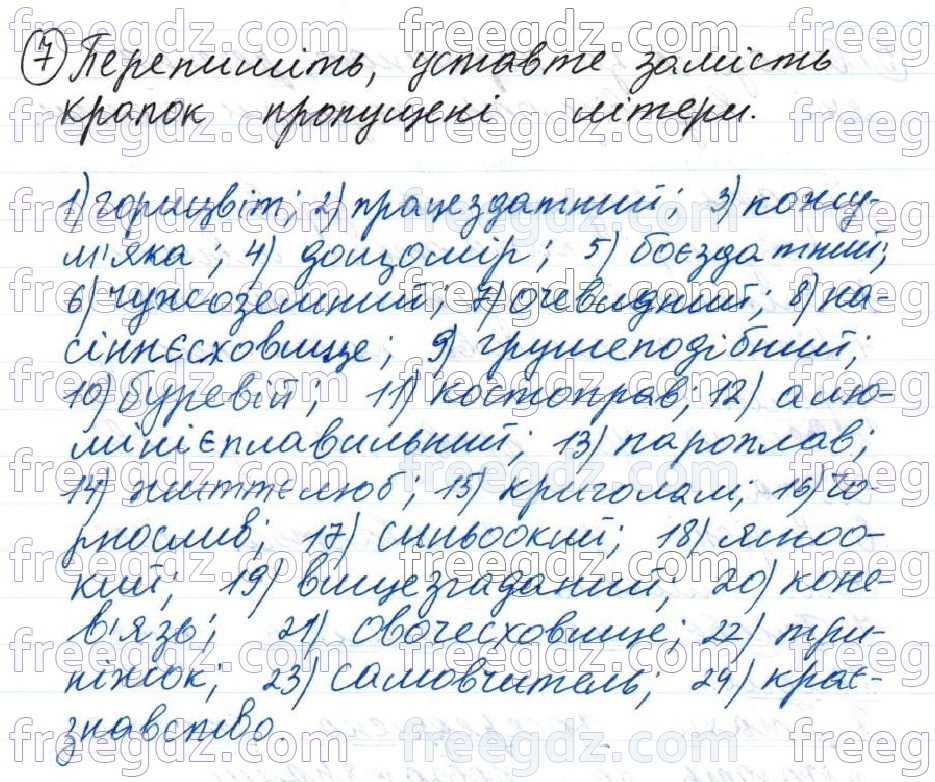 7 Перепишіть, уставте замість
крапок пропущені літери.
1) горицвіт; 2) працездатний; 3) кожу-
м'яка; 4) дощомір; 5) боєздатний;
6) чужоземний; 7) очевидний; 8) на-
сіннєсховище; 9) грушеподібний;
10) буревій; 11) костоправ; 12) алю-
мінієплавильний; 13) пароплав;
14) життелюб; 15) криголам; 16) чо-
рнослив; 17) синьоокий; 18) ясноо-
кий; 19) вищезгаданий; 20) коне-
в'язь; 21) овочесховище; 22) три-
ніжок; 23) самовчитель; 24) крає-
знавство.